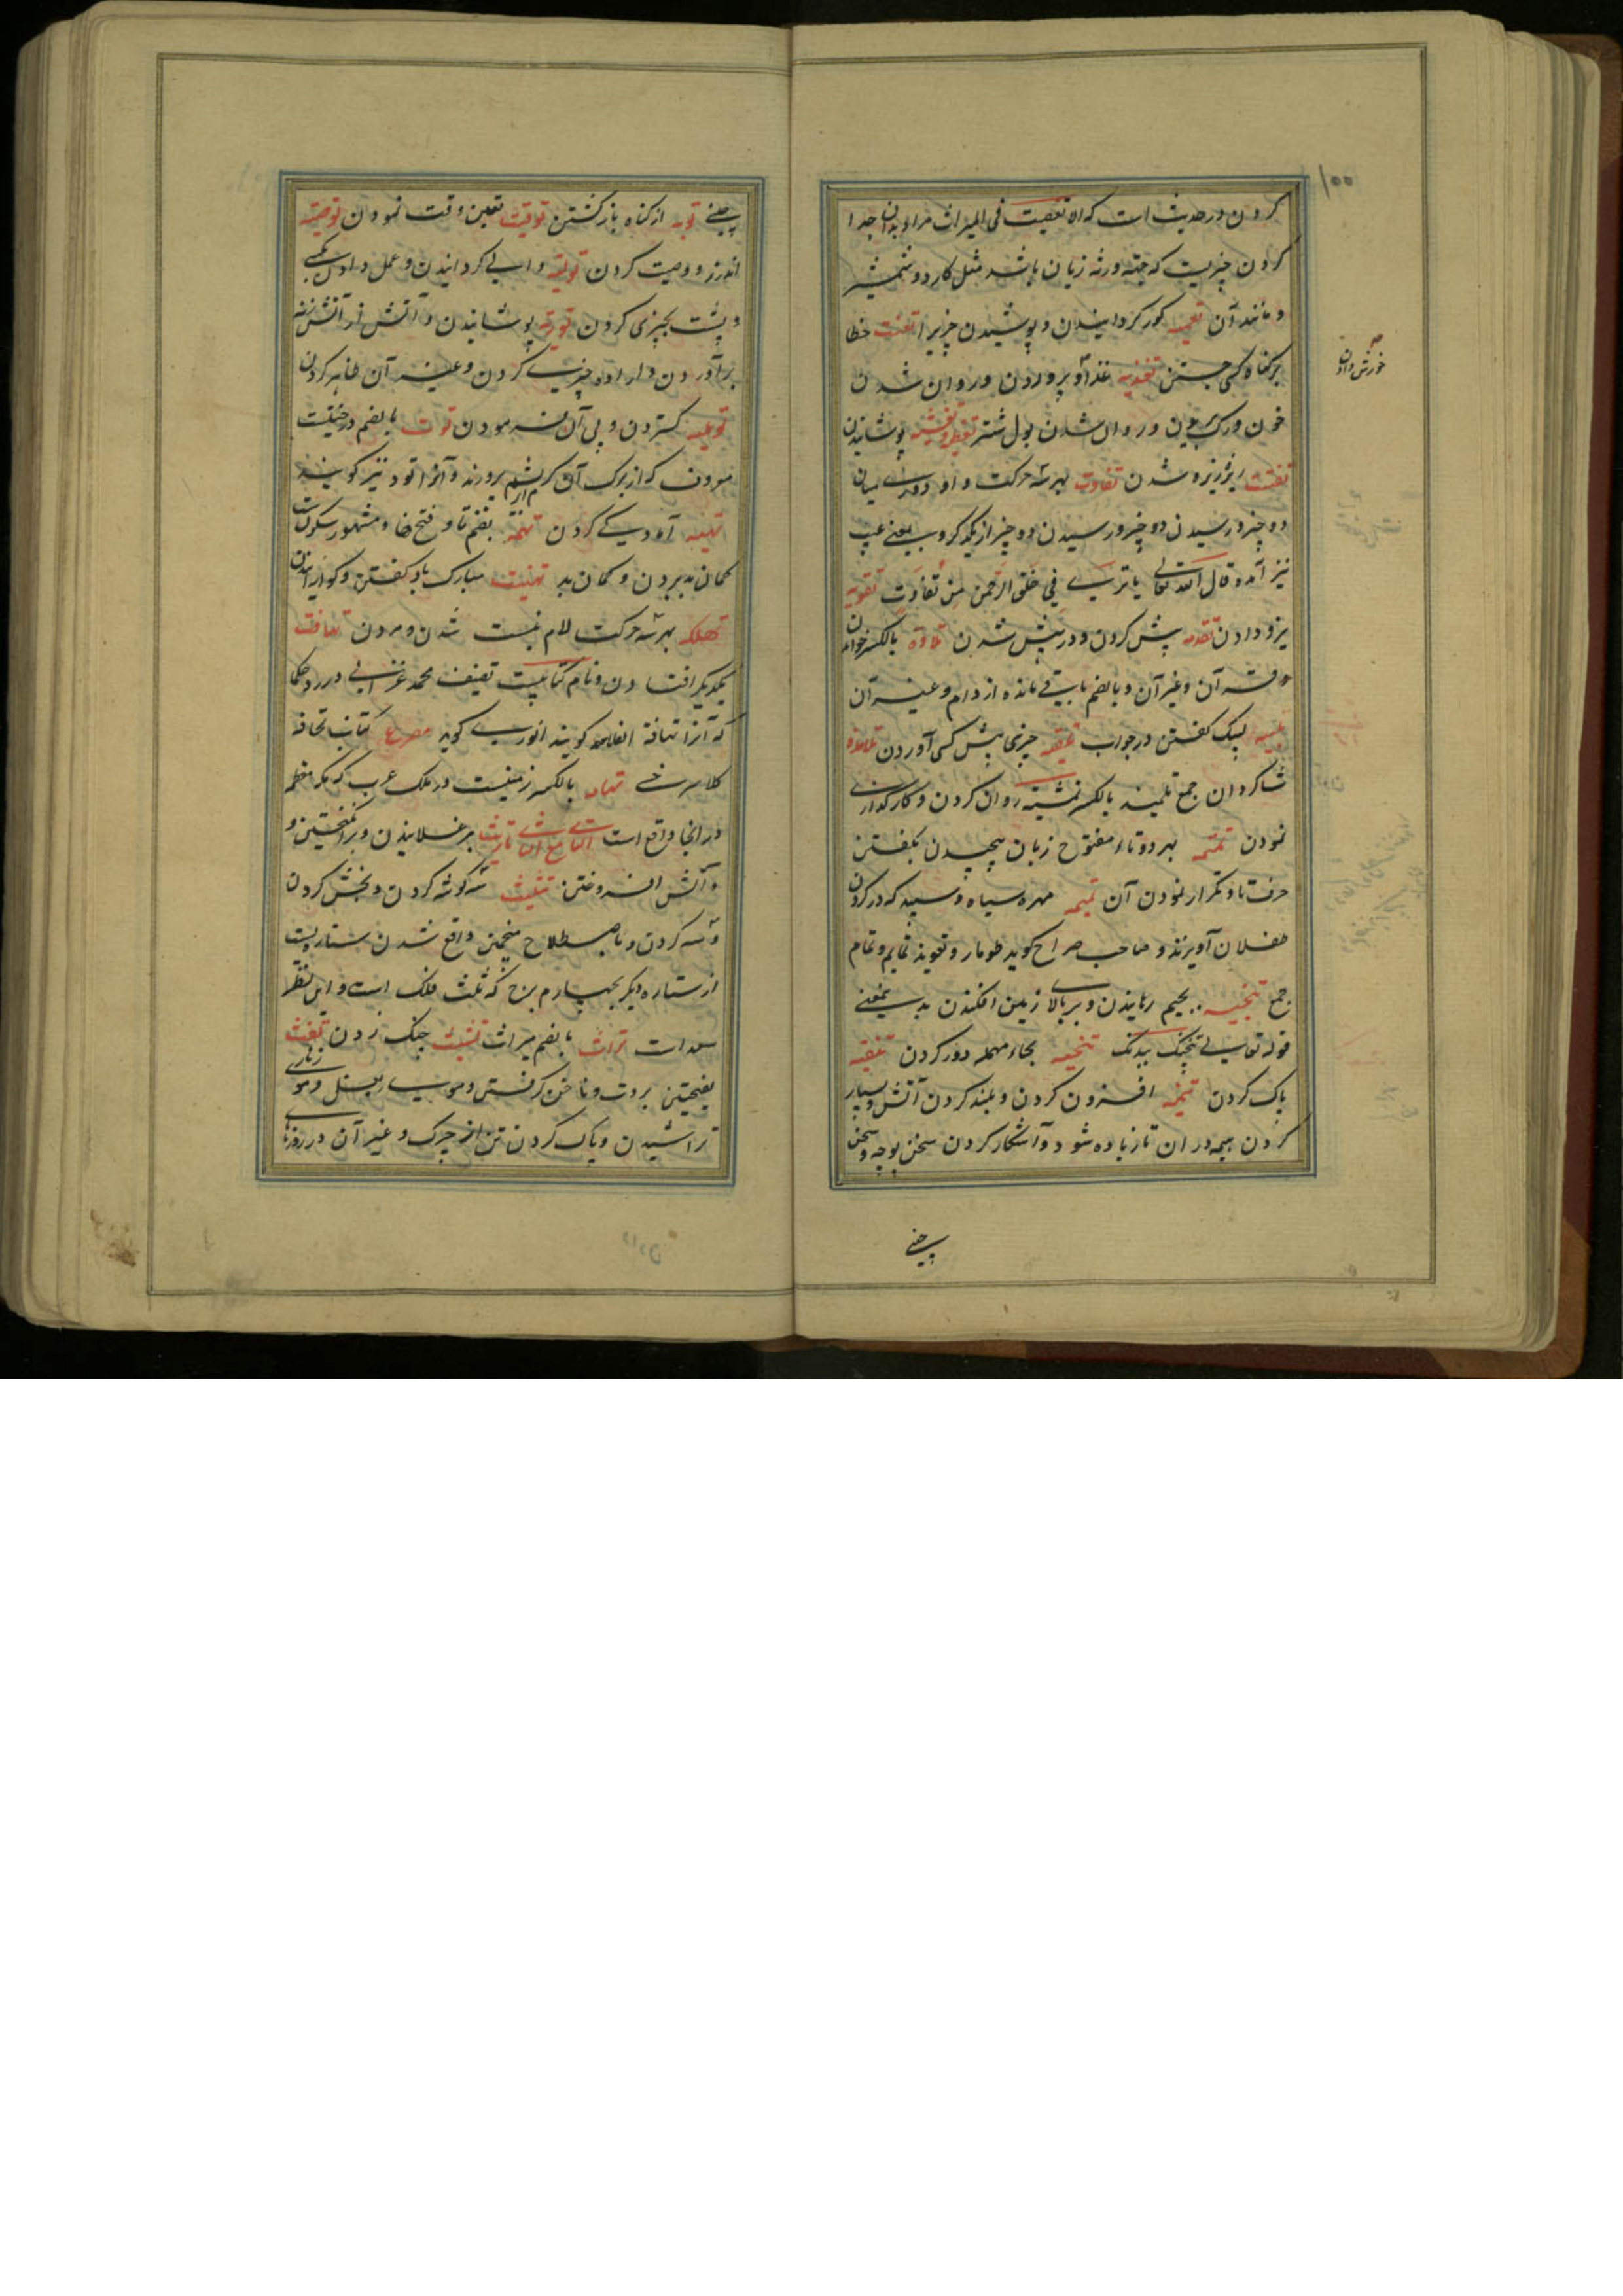 کردن در حدیث است که لا تعضیت فی المیراث مراد بدان جدا
کردن چیزیست که جهة ورثه زیان باشد مثل کارد و شمشیر
و مانند آن تعمیه کور گردانیدن و پوشیدن چیزیرا تعنت خطا
بر گناه کسی جستن تغذیه غذا و پروردن و روان شدن
خون و رک و روان شدن بول شتر تغطیه تغشیه پوشانیدن
تفتت ریزه ریزه شدن تفاوت بهر سه حرکت واو دوری میان
دو چیز و رسیدن دو چیز از یکدیگر و بمعنی عیب
نیز آمده قال الله تعالی ما تری فی خلق الرحمن من تفاوت تقویه
نیرو دادن تقدمه پیش کردن و در پیش شدن تلاوة بالکسر خواندن
قرآن و غیر آن و بالضم باقی مانده از دام و غیر آن
تلبیه لبیک گفتن در جواب تلقیه چیزی پیش کسی آوردن تلامذه
شاگردان جمع تلمیذ بالکسر تمشیه روان کردن و کارگذاری
نمودن تمتمه بهر دو تاء مفتوح زبان پیچیدن بگفتن
حرف تا و تکرار نمودن آن تمیمه مهره سیاه و سپید که در گردن
طفلان آویزند و صاحب صراح گوید طومار و تعویذ تمایم و تمام
جمع تنجیه بجیم رهانیدن و بر بالای زمین افکندن بدین معنی
قوله تعالی ننجیک ببدنک تنحیه بحاء مهمله دور کردن تنقیه
پاک کردن تنمیه افزون کردن و بلند کردن آتش و بسیار
کردن هیمه در آن تا زیاده شود و آشکار کردن سخن بوجه و سخن
چینی
۱۰۰
خورش دادن
چینی توبه از گناه بازگشتن توقیت تعیین وقت نمودن توصیه
اندرز و وصیت کردن تولیه والی گردانیدن و عمل دادن بکسی
و پشت بچیزی کردن توریه پوشانیدن و آتش از آتش زنه
برآوردن و اراده چیزی کردن و غیر آن ظاهر کردن
کستردن و پی آن فرمودن توت بالضم درختیست
معروف که از برگ آن کرم ابریشم پرورند و آنرا تود نیز گویند
تهیه آمادگی کردن تهمه بضم تا و فتح ها و مشهور بسکون است
گمان بد بردن و گمان بد تهنیت مبارک باد گفتن و گوارانیدن
تهلکه بهر سه حرکت لام نیست شدن و مردن تهافت
بیکدیگر افتادن و نام کتابیست تصنیف محمد غزالی در رد حکما
که آنرا تهافة الفلاسفه گویند انوری گوید مصرع کتاب تهافة
کلاسرخی تهامه بالکسر زمینیست در ملک عرب که مکه معظمه
در آنجا واقع است التاء مع الثاء تاریث برغلانیدن و برانگیختن و
و آتش افروختن تثلیث سه گوشه کردن و بخش کردن
و سه کردن و باصطلاح منجمین واقع شدن ستاره‌ایست
از ستاره دیگر بچهارم برج که ثلث فلک است و این نظر
سعد است تراث بالضم میراث تشبث چنگ زدن تفث
بفتحتین بروت و ناخن گرفتن و موی زیر بغل و موی زهاری
تراشیدن و پاک کردن تن از چرک و غیر آن در روزهای